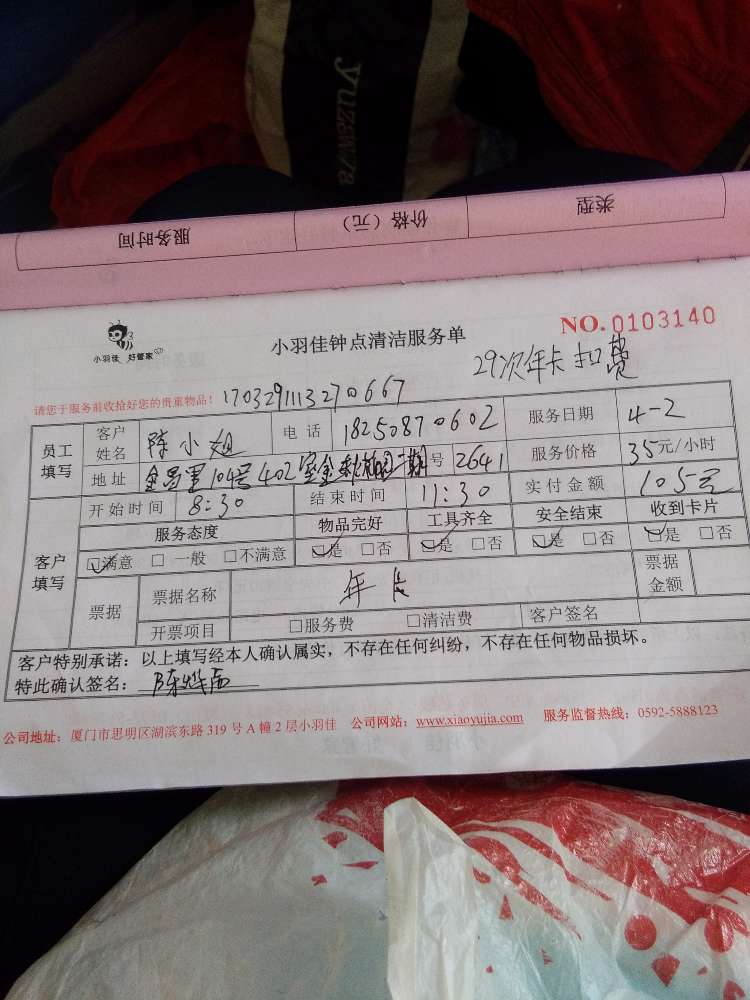 yuzawa
服务时间 价格（元） 类型
小羽佳 好管家
小羽佳钟点清洁服务单
NO. 0103140
29次年卡扣费
请您于服务前收拾好您的贵重物品！ 1703291113270667
员工填写 客户姓名 陈小姐 电话 18250870602 服务日期 4-2
地址 金昌里104号402室 号 2641 服务价格 35元/小时
客户填写 开始时间 8:30 结束时间 11:30 实付金额 105元
服务态度 物品完好 工具齐全 安全结束 收到卡片
☑满意 □ 一般 □不满意 ☑是 □否 ☑是 □否 ☑是 □否 ☑是 □否
票据 票据名称 年卡 票据金额
开票项目 □服务费 □清洁费 客户签名
客户特别承诺：以上填写经本人确认属实，不存在任何纠纷，不存在任何物品损坏。
特此确认签名：
公司地址：厦门市思明区湖滨东路 319 号 A 幢 2 层小羽佳 公司网站：www.xiaoyujia.com 服务监督热线：0592-5888123